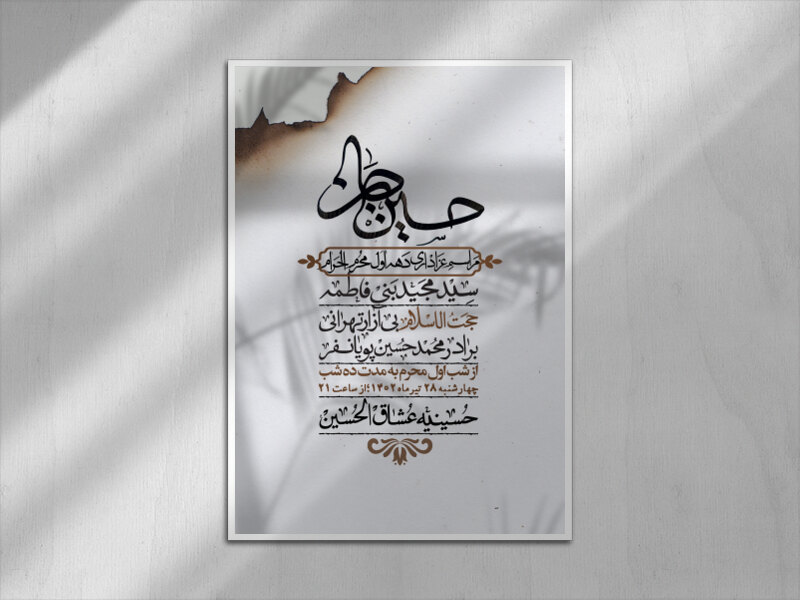 حسین جان
مراسم عزاداری دهه اول محرم الحرام
سید مجید بنی فاطمه
حجت الاسلام بی آزار تهرانی
برادر محمد حسین پویانفر
از شب اول محرم به مدت ده شب
چهارشنبه ۲۸ تیر ماه ۱۴۰۲؛ از ساعت ۲۱
حُسینیه عُشاق الحُسین